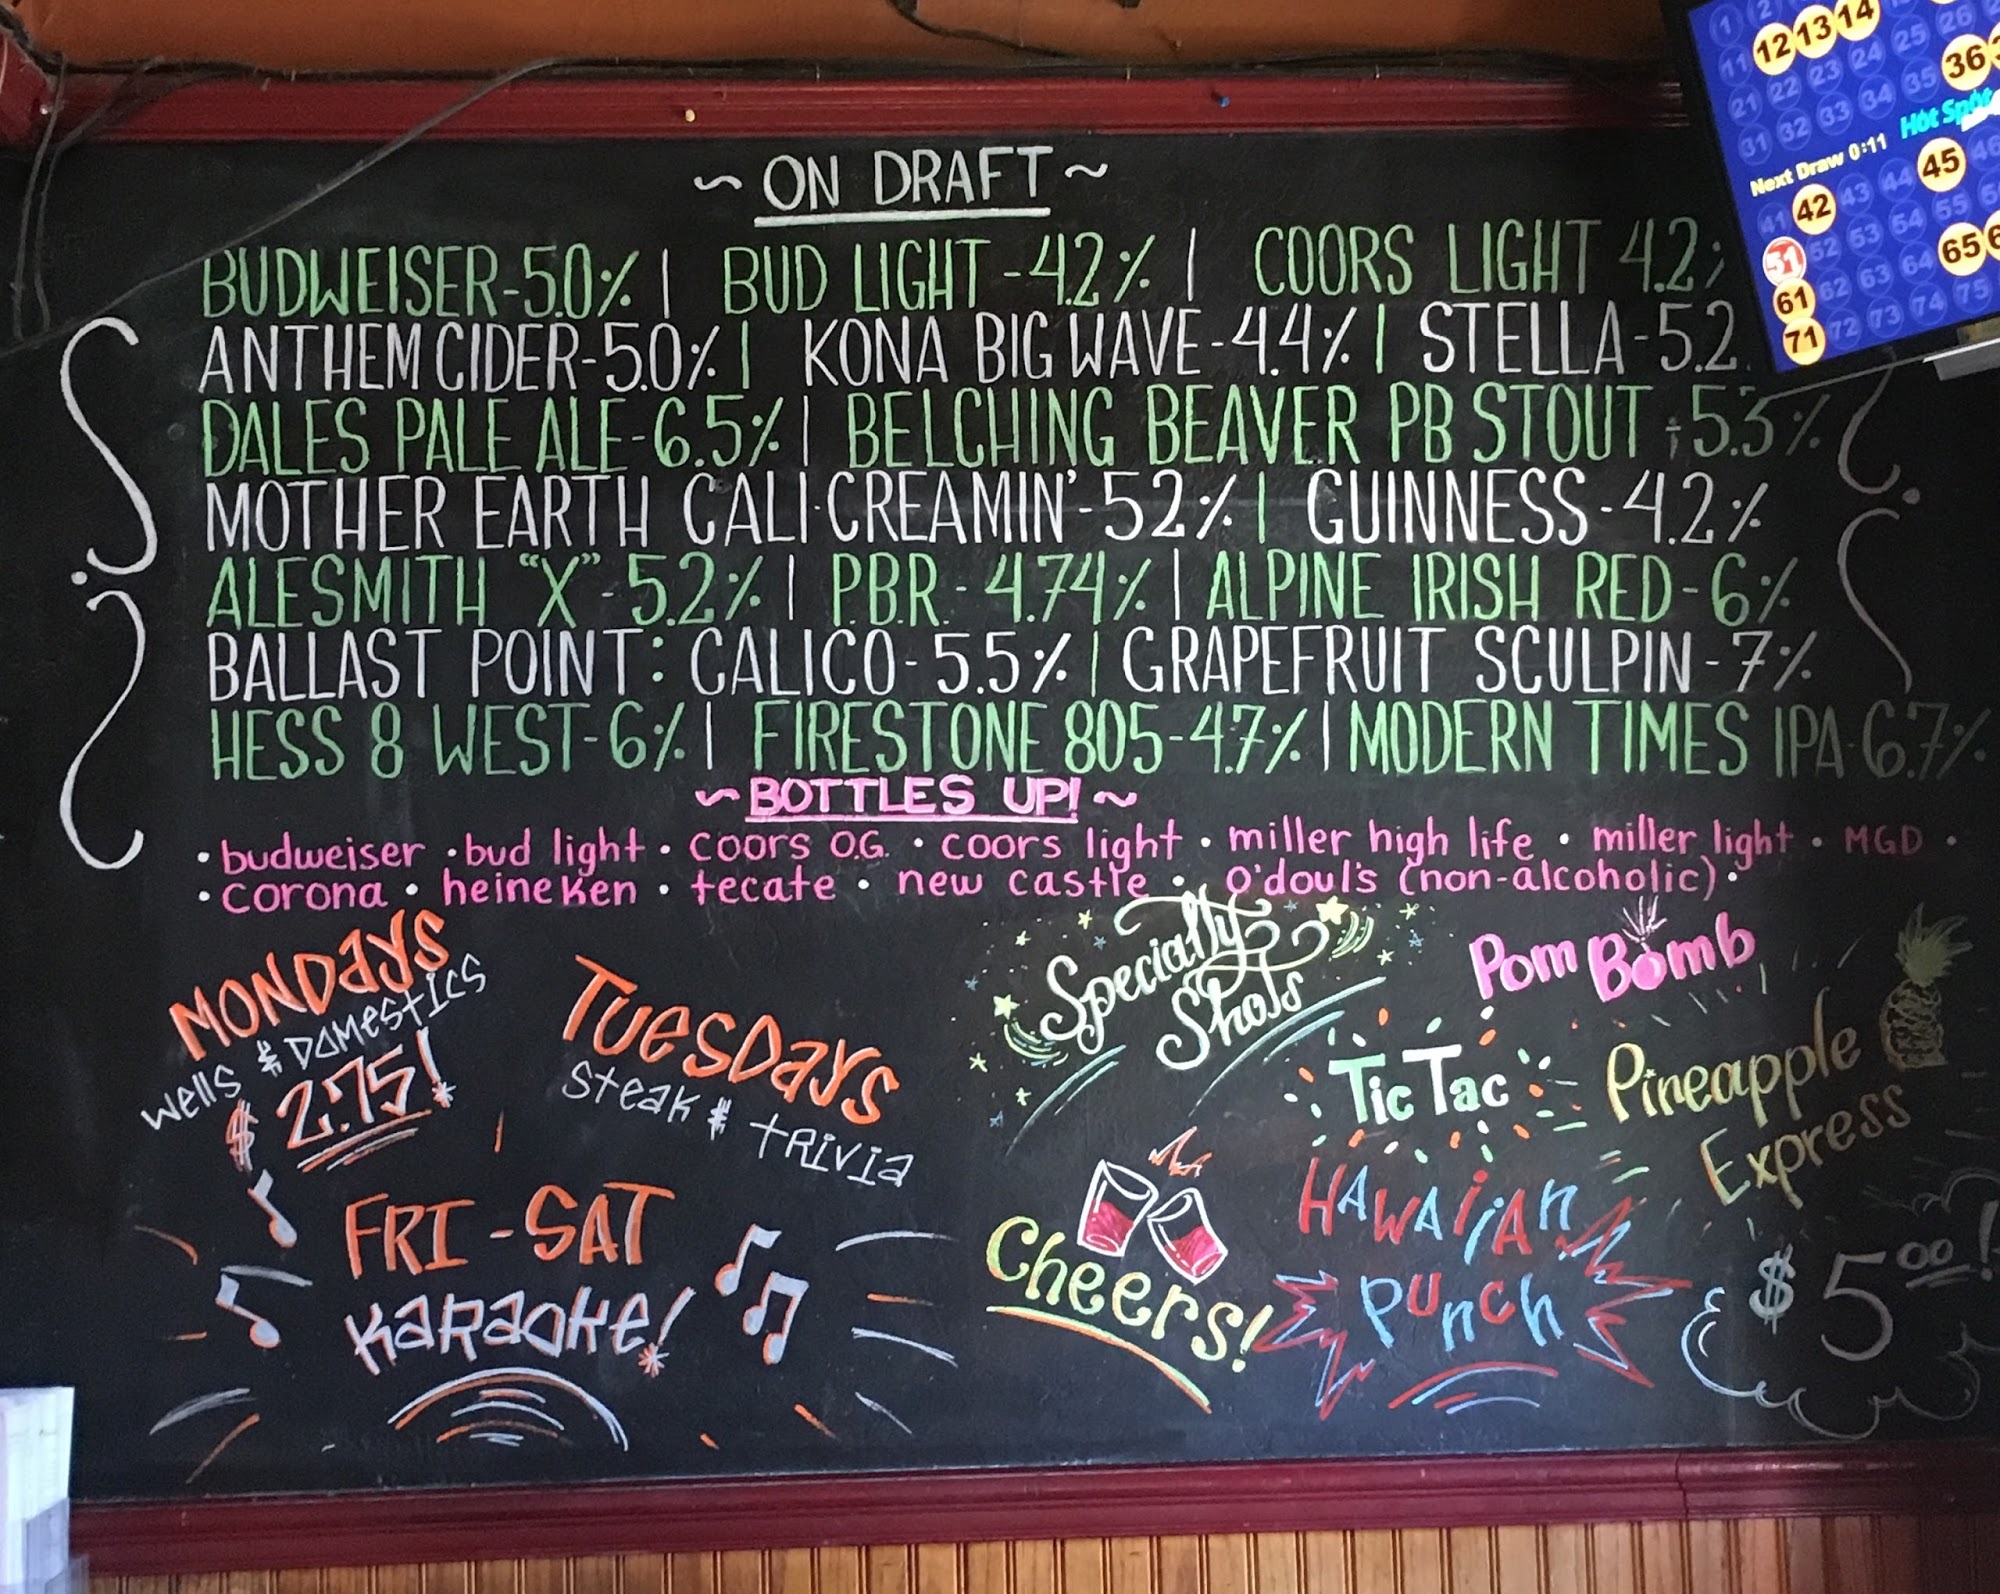 ~ ON DRAFT ~
BUDWEISER-5.0% | BUD LIGHT-4.2% | COORS LIGHT 4.2%
ANTHEM CIDER-5.0% | KONA BIG WAVE-4.4% | STELLA-5.2
DALES PALE ALE-6.5% | BELCHING BEAVER PB STOUT-5.3%
MOTHER EARTH CALI-CREAMIN'-5.2% | GUINNESS-4.2%
ALESMITH "X"-5.2% | P.B.R.-4.74% | ALPINE IRISH RED-6%
BALLAST POINT: CALICO-5.5% | GRAPEFRUIT SCULPIN-7%
HESS 8 WEST-6% | FIRESTONE 805-4.7% | MODERN TIMES IPA-6.7%
~ BOTTLES UP! ~
• budweiser • bud light • coors O.G. • coors light • miller high life • miller light • MGD •
• corona • heineken • tecate • new castle • o'doul's (non-alcoholic) •
MONDAYS
wells & DOMESTICS
$2.75!
TUESDAYS
steak & trivia
FRI-SAT
KARAOKE!
Specialty
Shots
Pom Bomb
Tic Tac
Pineapple
Express
Cheers!
HAWAIIAN
PUNCH
$5.00!
1 2 12 13 14 25 26
11 21 22 23 24 35 36
31 32 33 34 Hot Spot
Next Draw 0:11
41 42 43 44 45 46
51 52 53 54 55
61 62 63 64 65
71 72 73 74 75